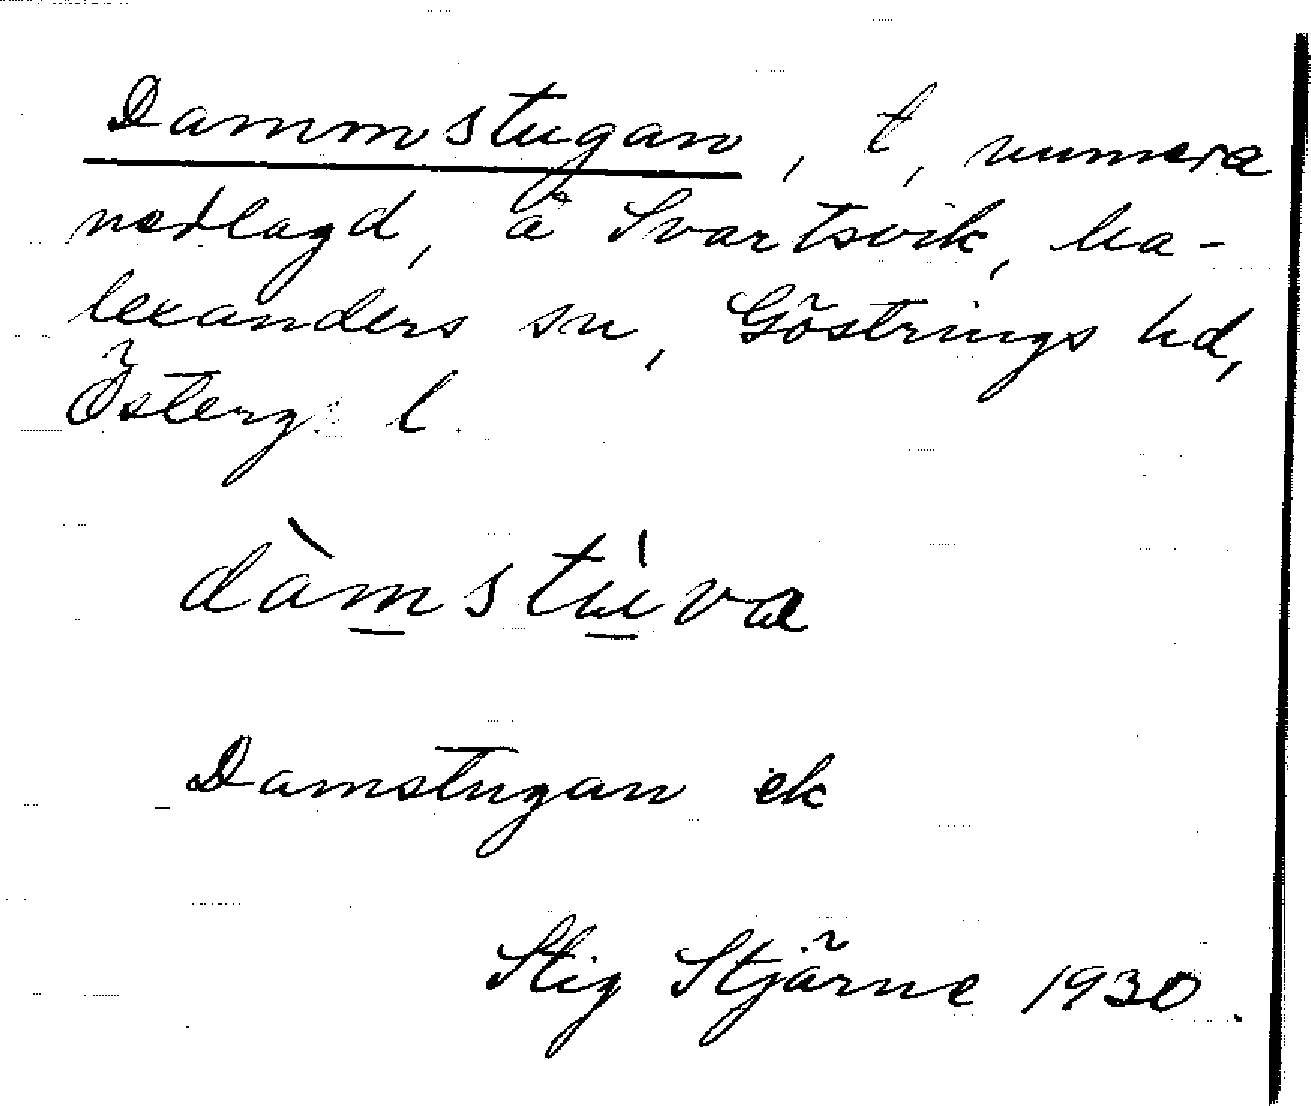 Dammstugan, t, numera
nedlagd, å Svartsvik, Ka-
lexanders sn, Göstrings hd,
Österg. l.
dàmstu̇va
Damstugan ek
Stig Stjärne 1930.